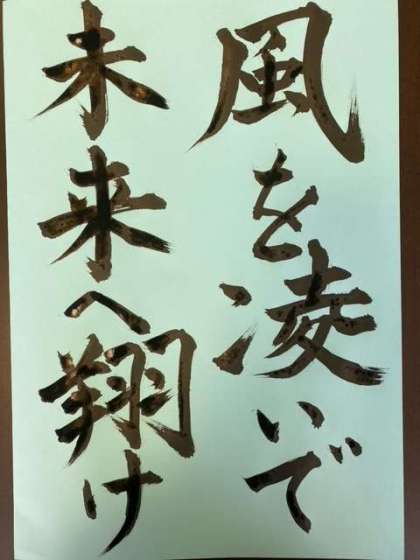 風を凌いで
未来へ翔け